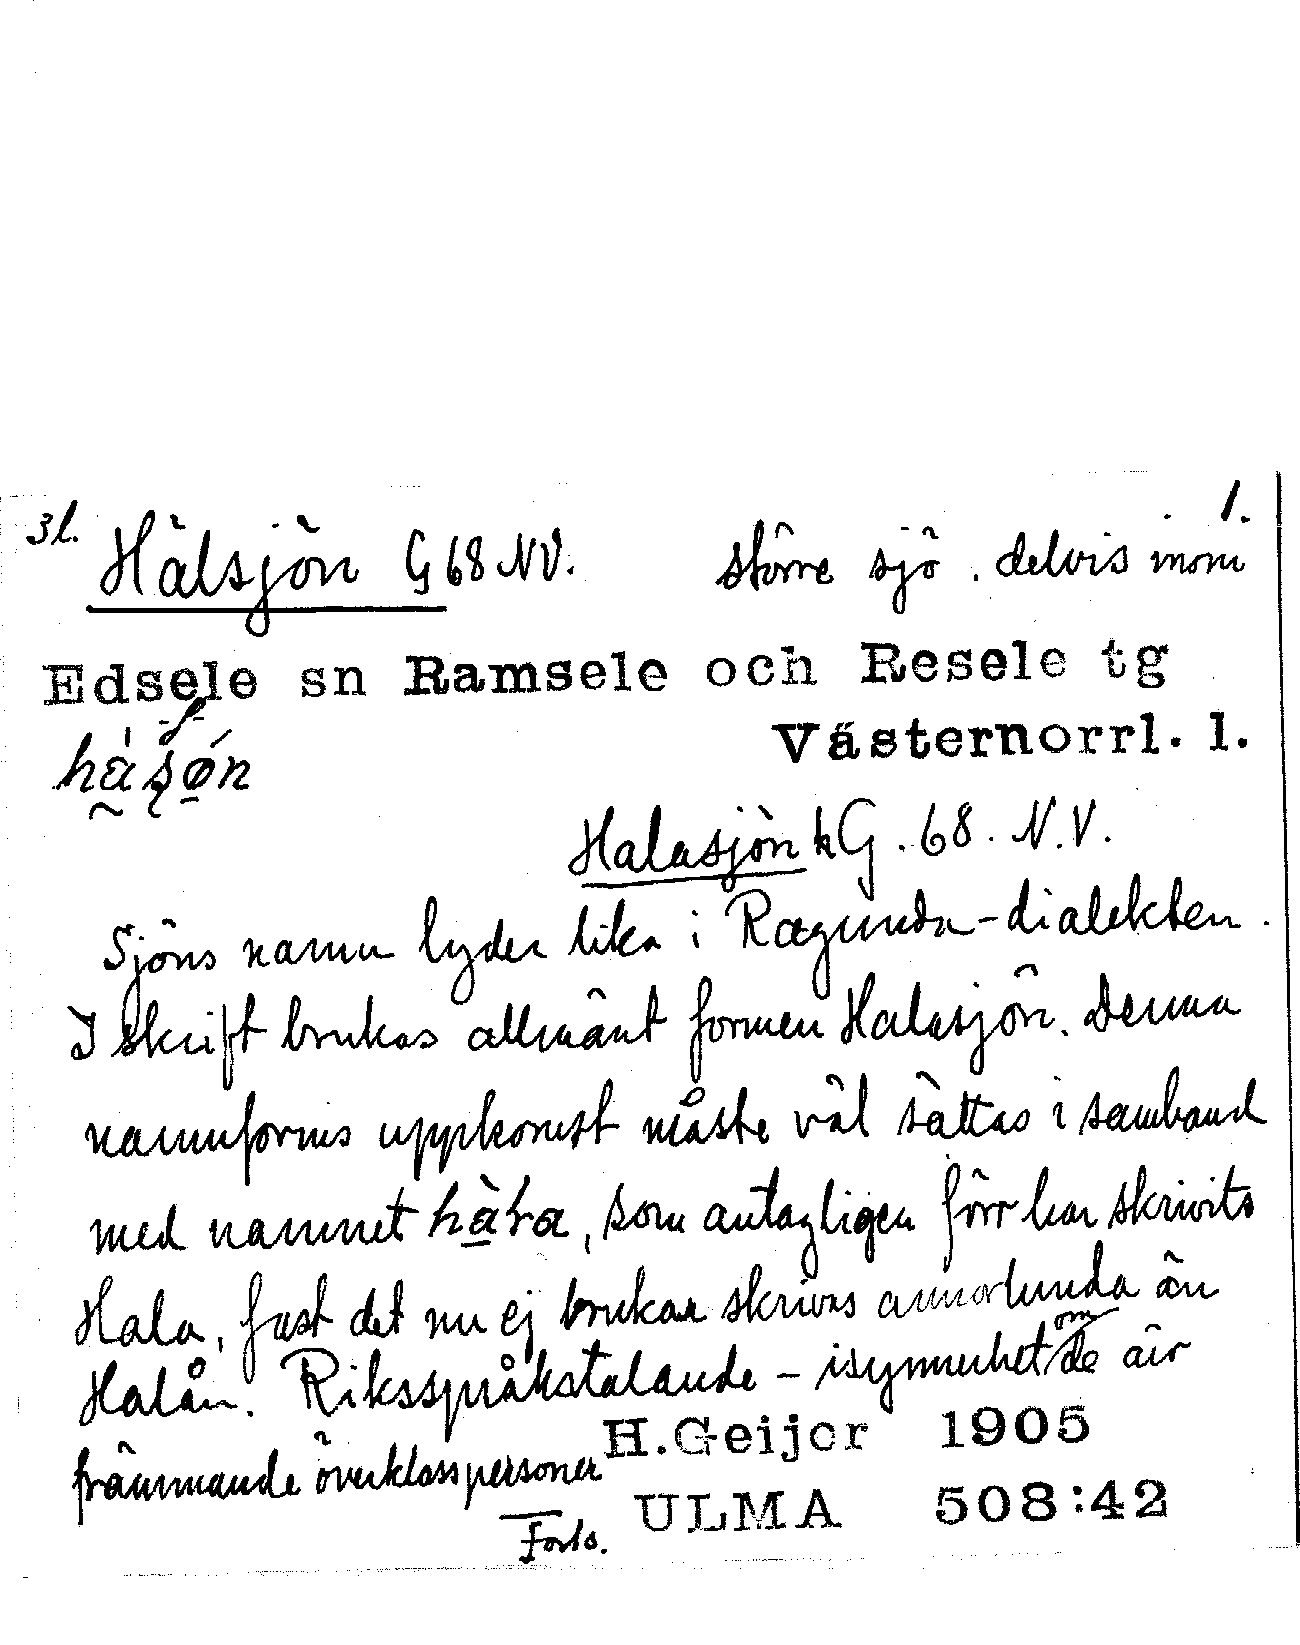 3l. 1.
Hälsjön G 68 NV. större sjö. delvis inom
Edsele sn Ramsele och Resele tg
Västernorrl. l.
Halasjön k G. 68. N.V.
Sjöns namn lyder lika i Ragunda-dialekten.
I skrift brukas allmänt formen Halasjön. Denna
namnforms uppkomst måste väl sättas i samband
med namnet , som antagligen förr har skrivits
Hala, fast det nu ej brukar skrivas annorlunda än
Halån. Riksspråkstalande – isynnerhet om de äro
främmande överklasspersoner
H. Geijer 1905
ULMA 508:42
Forts.